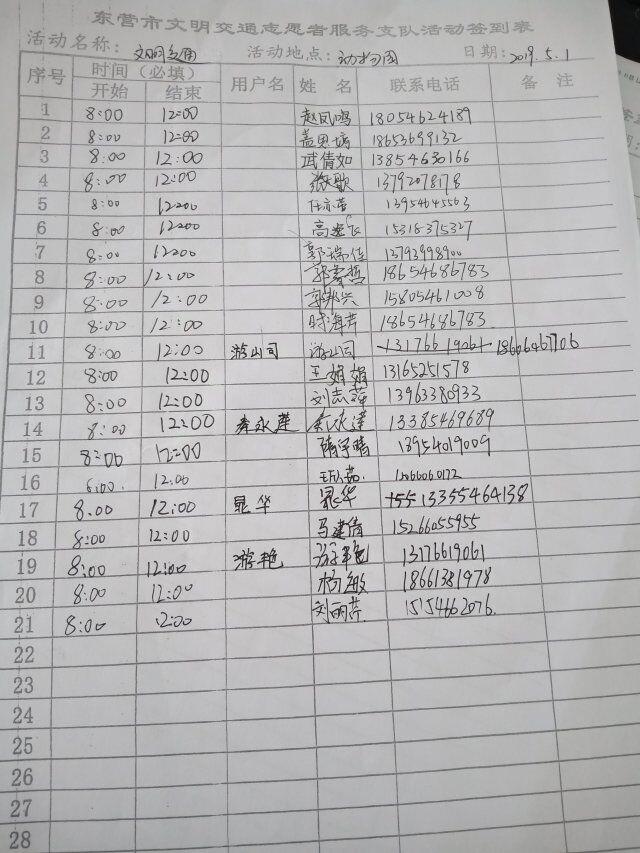 东营市文明交通志愿者服务支队活动签到表
活动名称: 文明交通 活动地点: 动物园 日期: 2019.5.1
序号 时间(必填) 用户名 姓 名 联系电话 备 注
开始 结束
1 8:00 12:00 赵凤鸣 18054624189
2 8:00 12:00 18653699132
3 8:00 12:00 武倩如 13854630166
4 8:00 12:00 张歌 13792078178
5 8:00 12:00 任亦蕾 13954645563
6 8:00 12:00 高逸飞 15318375327
7 8:00 12:00 郭瑞佳 13793998900
8 8:00 12:00 郭寿哲 18654686783
9 8:00 12:00 郭邦兴 15805461008
10 8:00 12:00 时海芹 18654686783
11 8:00 12:00 游山司 游山司 18606467706
12 8:00 12:00 王娟娟 13165251578
13 8:00 12:00 刘志强 13963380933
14 8:00 12:00 李永莲 李永莲 13385469689
15 8:00 12:00 隋宇晴 13954019009
16 8:00. 12:00
17 8.00 12:00 晁华 晁华 13355464138
18 8:00 12:00 马建倩 15266055955
19 8:00 12:00 游艳 游艳 13176619061
20 8:00 12:00 杨敏 18661381978
21 8:00 12:00 刘丽芹 15154662076.
22
23
24
25
26
27
28